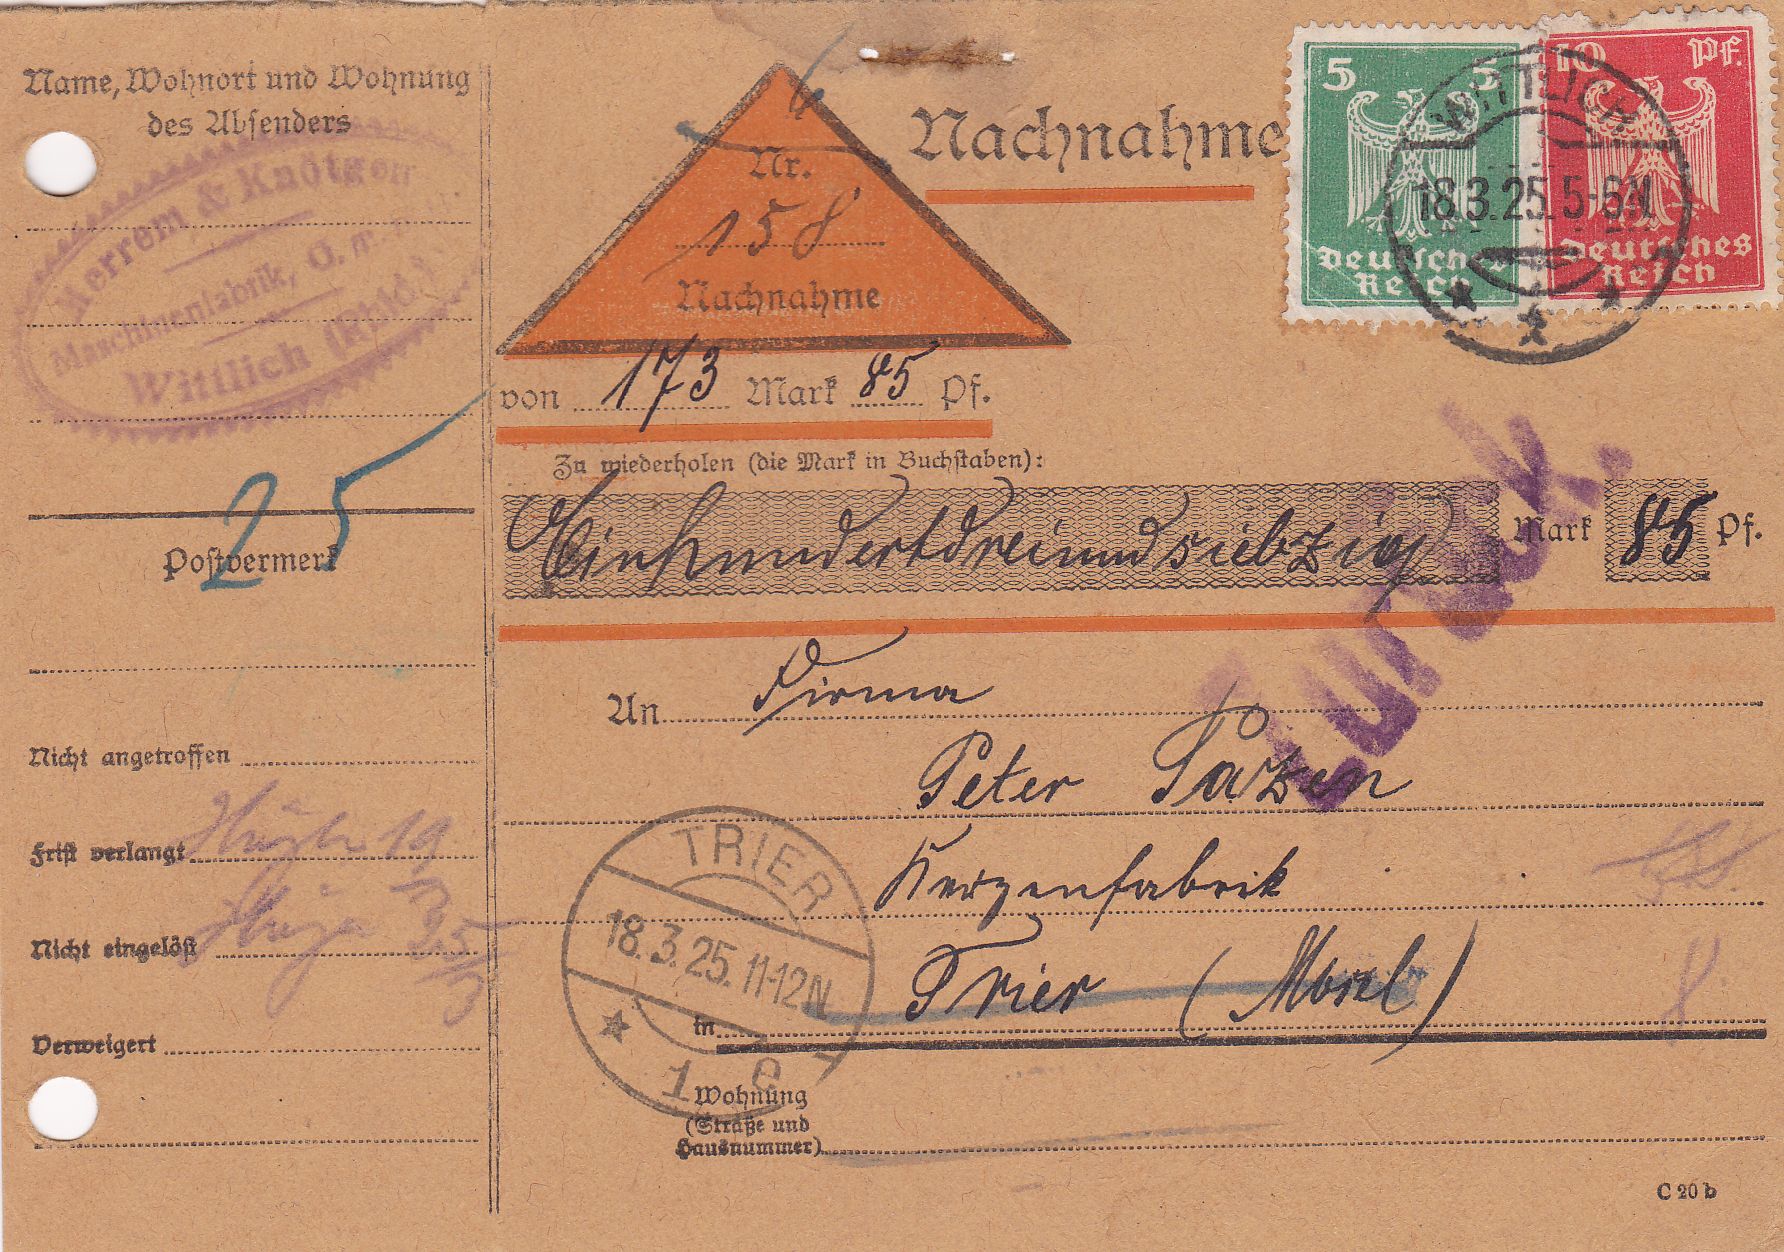 Name, Wohnort und Wohnung
des Absenders
Merrem & Knötgen
Maschinenfabrik,
Wittlich (Rhld.)
25
Postvermerk
Nicht angetroffen
Frist verlangt
19
Nicht eingelöst
25
Verweigert
Nr.
158
Nachnahme
Nachnahme
5 5
Deutsches
Reich
10 Pf.
Deutsches
Reich
WITTLICH
18.3.25. 5-6N
von 173 Mark 85 Pf.
Zu wiederholen (die Mark in Buchstaben):
Einhundertdreiundsiebzig Mark 85 Pf.
Zurück.
An Firma
Peter
Kerzenfabrik
in Trier (Mosel)
TRIER
18.3.25. 11-12N
1 e
Wohnung
(Straße und
Hausnummer)
C 20 b